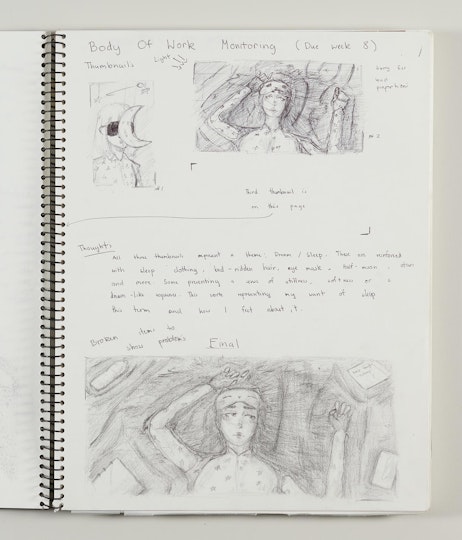 Body Of Work Monitoring (Due week 8)
Thumbnails
Light
Sorry for
bad
proportions
#1
#2
Third thumbnail is
on this page
Thoughts
All three thumbnails represent a theme: Dream / Sleep. These are reinforced
with sleep clothing, bed-ridden hair, eye mask, half-moon, stars
and more. Some presenting a sense of stillness, softness or a
dream-like aspect. This work representing my want of sleep
this term and how I feel about it.
items to
show problems
Final